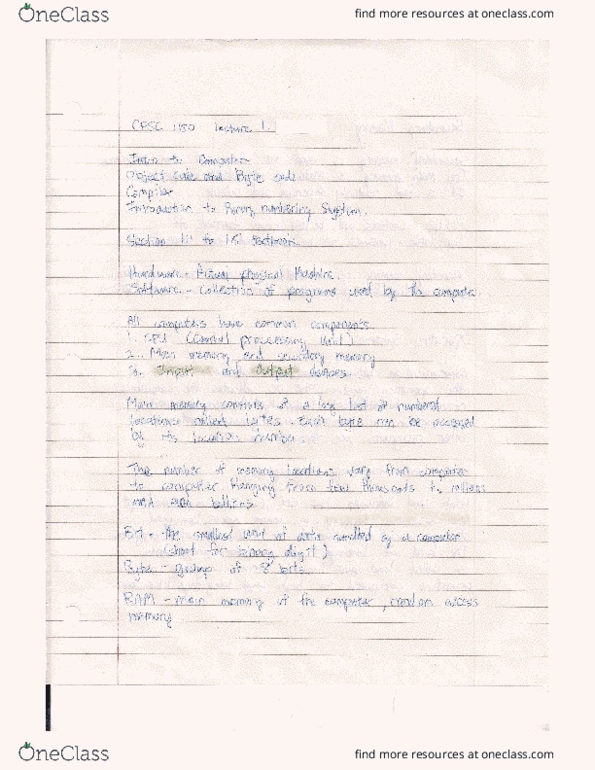 OneClass
find more resources at oneclass.com
CPSC 1150 Lecture 1.
Intro to Computer
Object Code and Byte code
Compiler
Introduction to Binary numbering System.
Section 1.1 to textbook
Hardware - Actual physical Machine.
Software - Collection of programs used by the computer
All computers have common components
1. CPU (Central processing unit)
2. Main memory and secondary memory
3. Input and Output devices
Main memory consists of a long list of numbered
locations called bytes. Each byte can be accessed
by its location number.
The number of memory locations vary from computer
to computer Ranging from few thousands to millions
and even billions
Bit - the smallest unit of data handled by a computer
(short for binary digit)
Byte - group of 8 bits.
RAM - main memory of the computer, random access
memory
OneClass
find more resources at oneclass.com